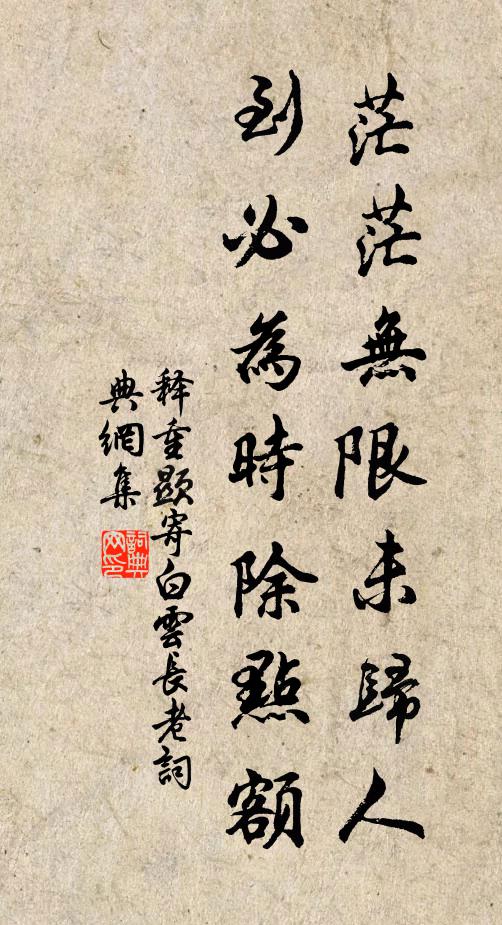 茫茫無限未歸人
到必為時除點額
释重顯寄白雲長老詞
典網集
詞典網印